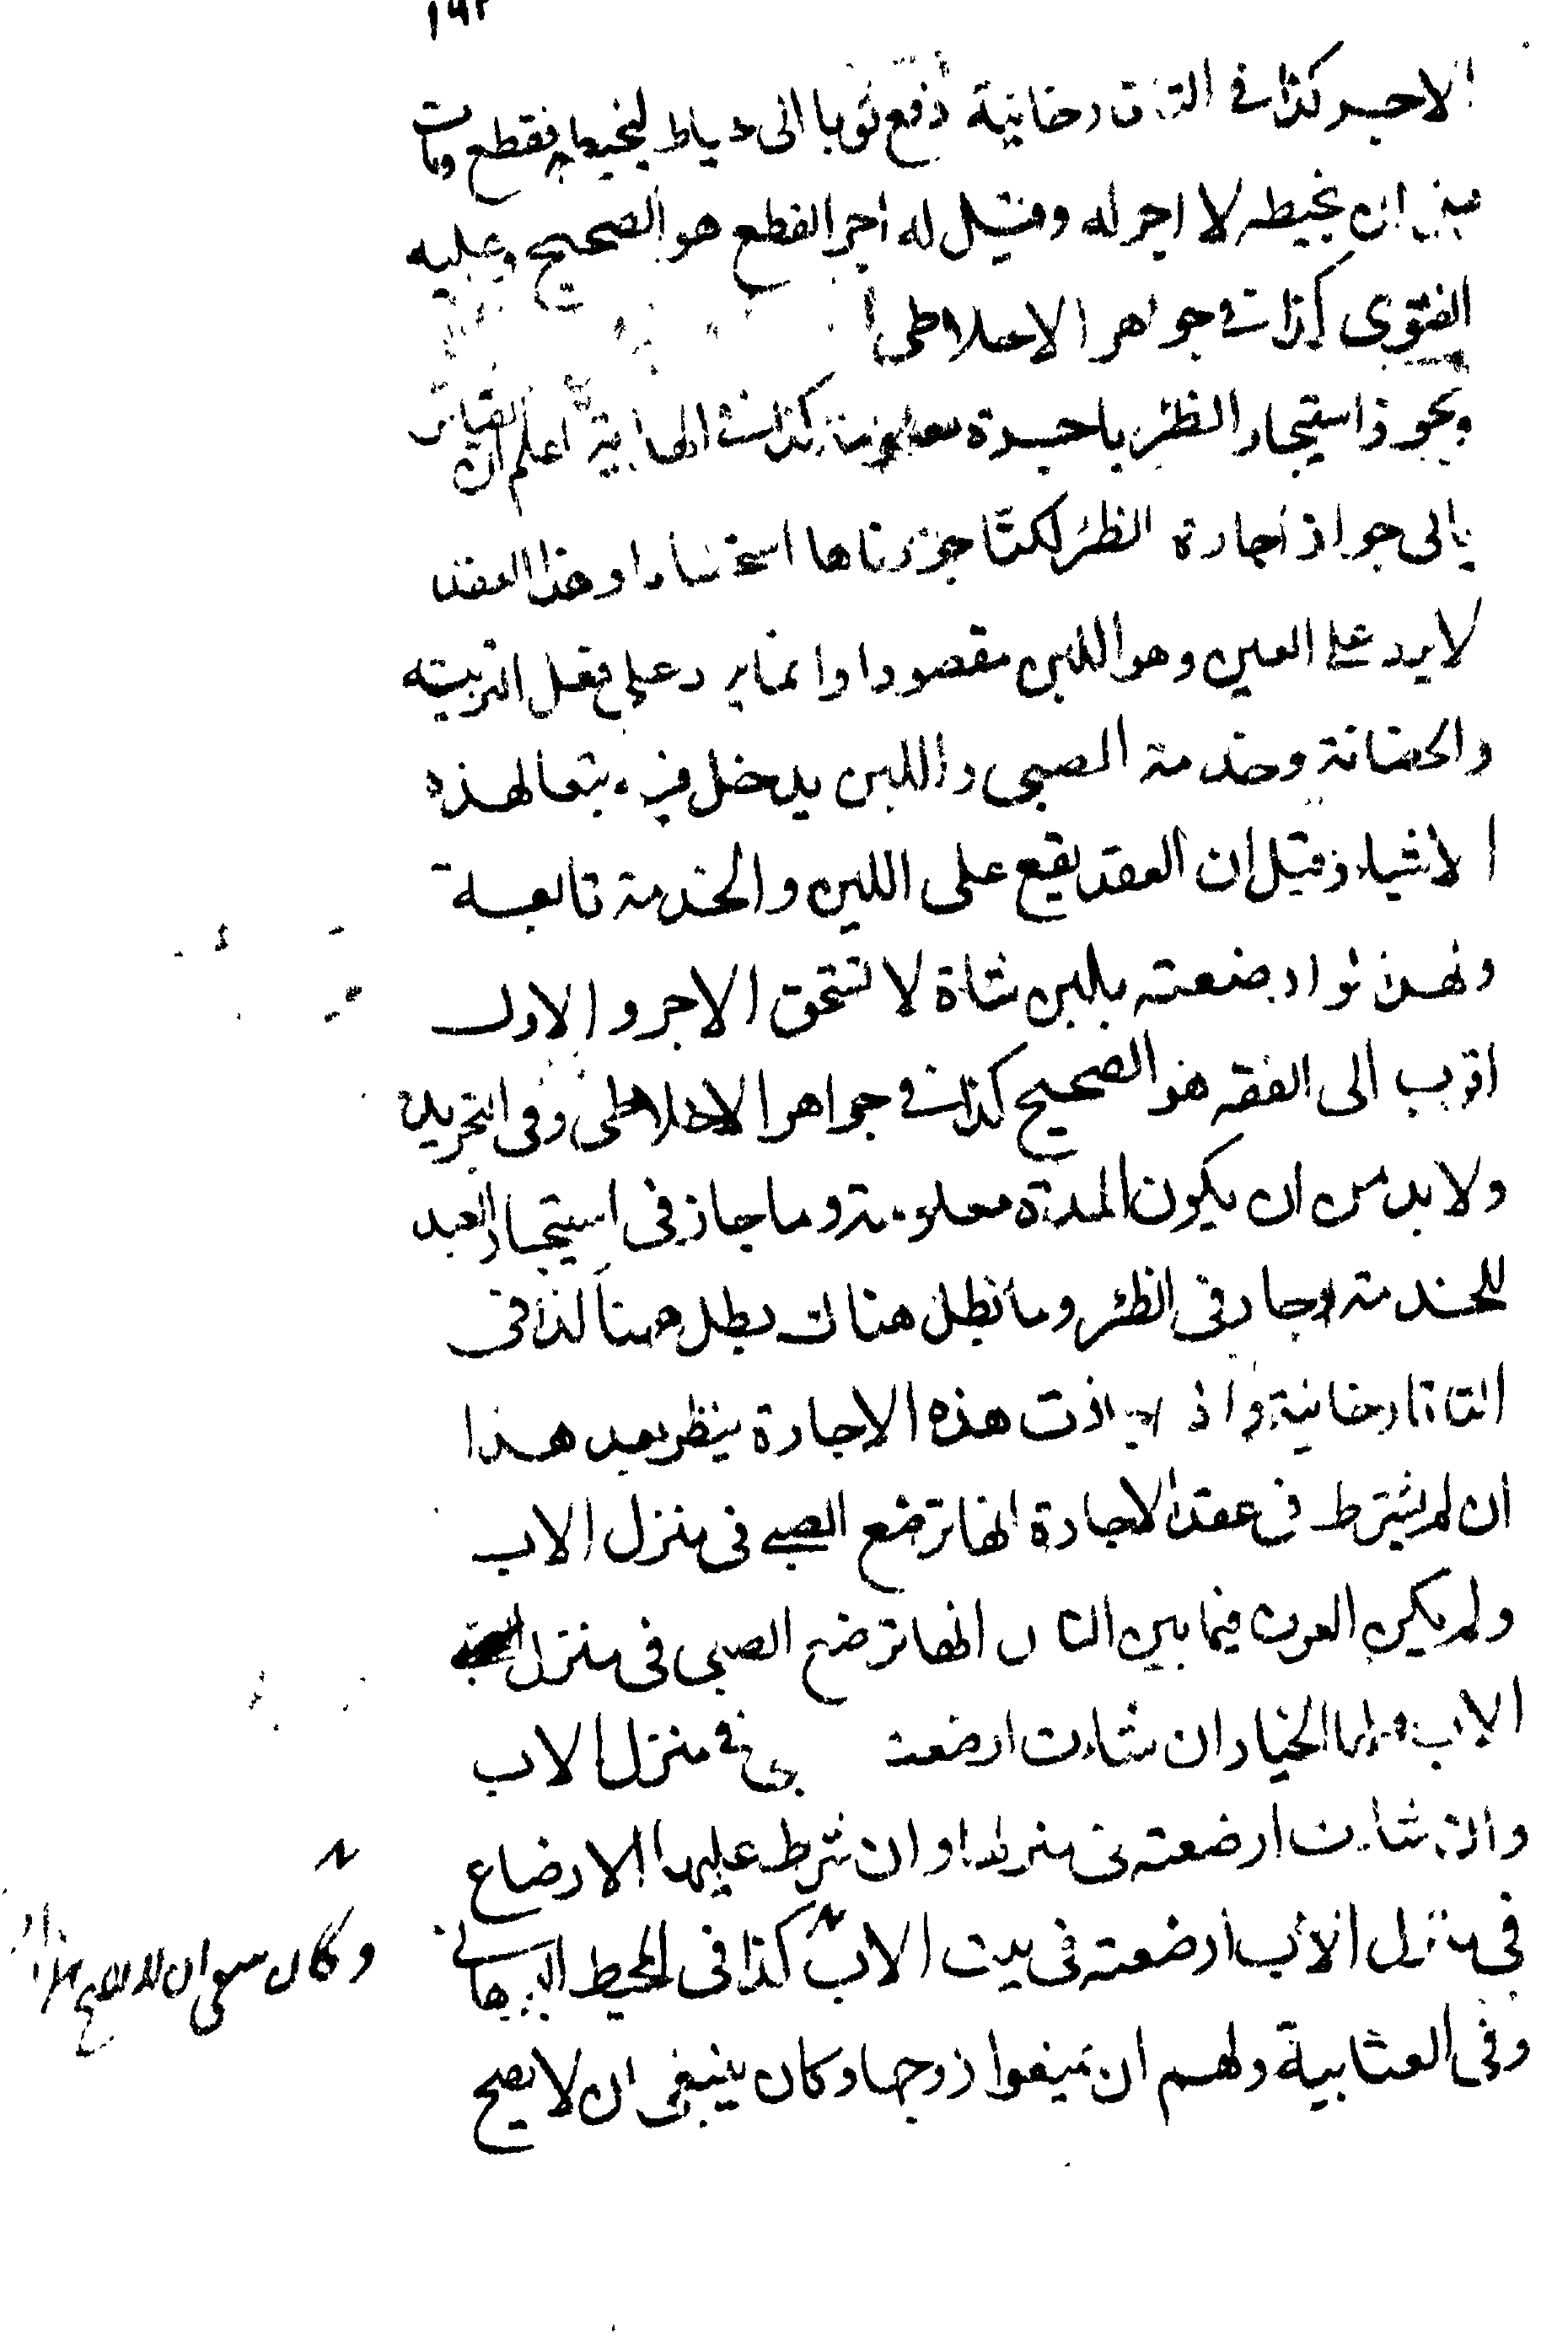 الاجر كذا في التاتارخانية دفع ثوبا الى خياط ليخيطه فقطع ومات
قبل ان يخيطه لا اجر له وقيل له اجر القطع هو الصحيح وعليه
الفتوى كذا في جواهر الاخلاطى
ويجوز استيجار الظئر باجرة معلومة كذا في الهداية اعلم ان القياس
يابى جواز اجارة الظئر لكنا جوزناها استحسانا وهذا العقد
لا يرد على العين وهو اللبن مقصودا وانما يرد على فعل التربية
والحضانة وخدمة الصبى واللبن يدخل فيه تبعا لهذه
الاشياء وقيل ان العقد يقع على اللبن والخدمة تابعة
ولهذا لو ارضعته بلبن شاة لا تستحق الاجر والاول
اقرب الى الفقه هو الصحيح كذا في جواهر الاخلاطى وفى التجريد
ولا بد من ان يكون المدة معلومة وما جاز فى استيجار العبد
للخدمة جاز فى الظئر وما بطل هناك بطل هنا كذا فى
التاتارخانية واذا جازت هذه الاجارة ينظر بعد هذا
ان لم يشترط فى عقد الاجارة انها ترضع الصبى فى منزل الاب
ولم يكن العرف فيما بين الناس انها ترضع الصبى فى منزل
الاب فلها الخيار ان شاءت ارضعت في منزل الاب
وان شاءت ارضعته فى منزلها وان شرط عليها الارضاع
فى منزل الاب ارضعته فى بيت الاب كذا فى المحيط البرهانى
وفى العتابية ولهم ان يمنعوا زوجها وكان ينبغى ان لا يصح
وكان